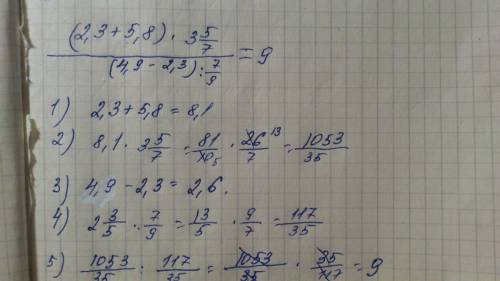 (2,3+5,8) · 3 5/7
/ (4,9 - 2,3) : 7/9 = 9
1) 2,3+5,8 = 8,1
2) 8,1 · 3 5/7 = 81/10 5 · 26 13/7 = 1053/35
3) 4,9 - 2,3 = 2,6.
4) 2 3/5 : 7/9 = 13/5 · 9/7 = 117/35
5) 1053/35 : 117/35 = 1053/35 · 35/117 = 9